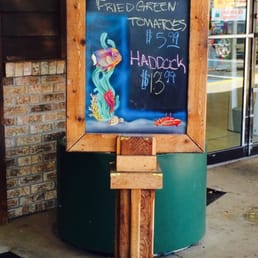 Fried Green
Tomatoes
$5.99
Haddock
$13.99